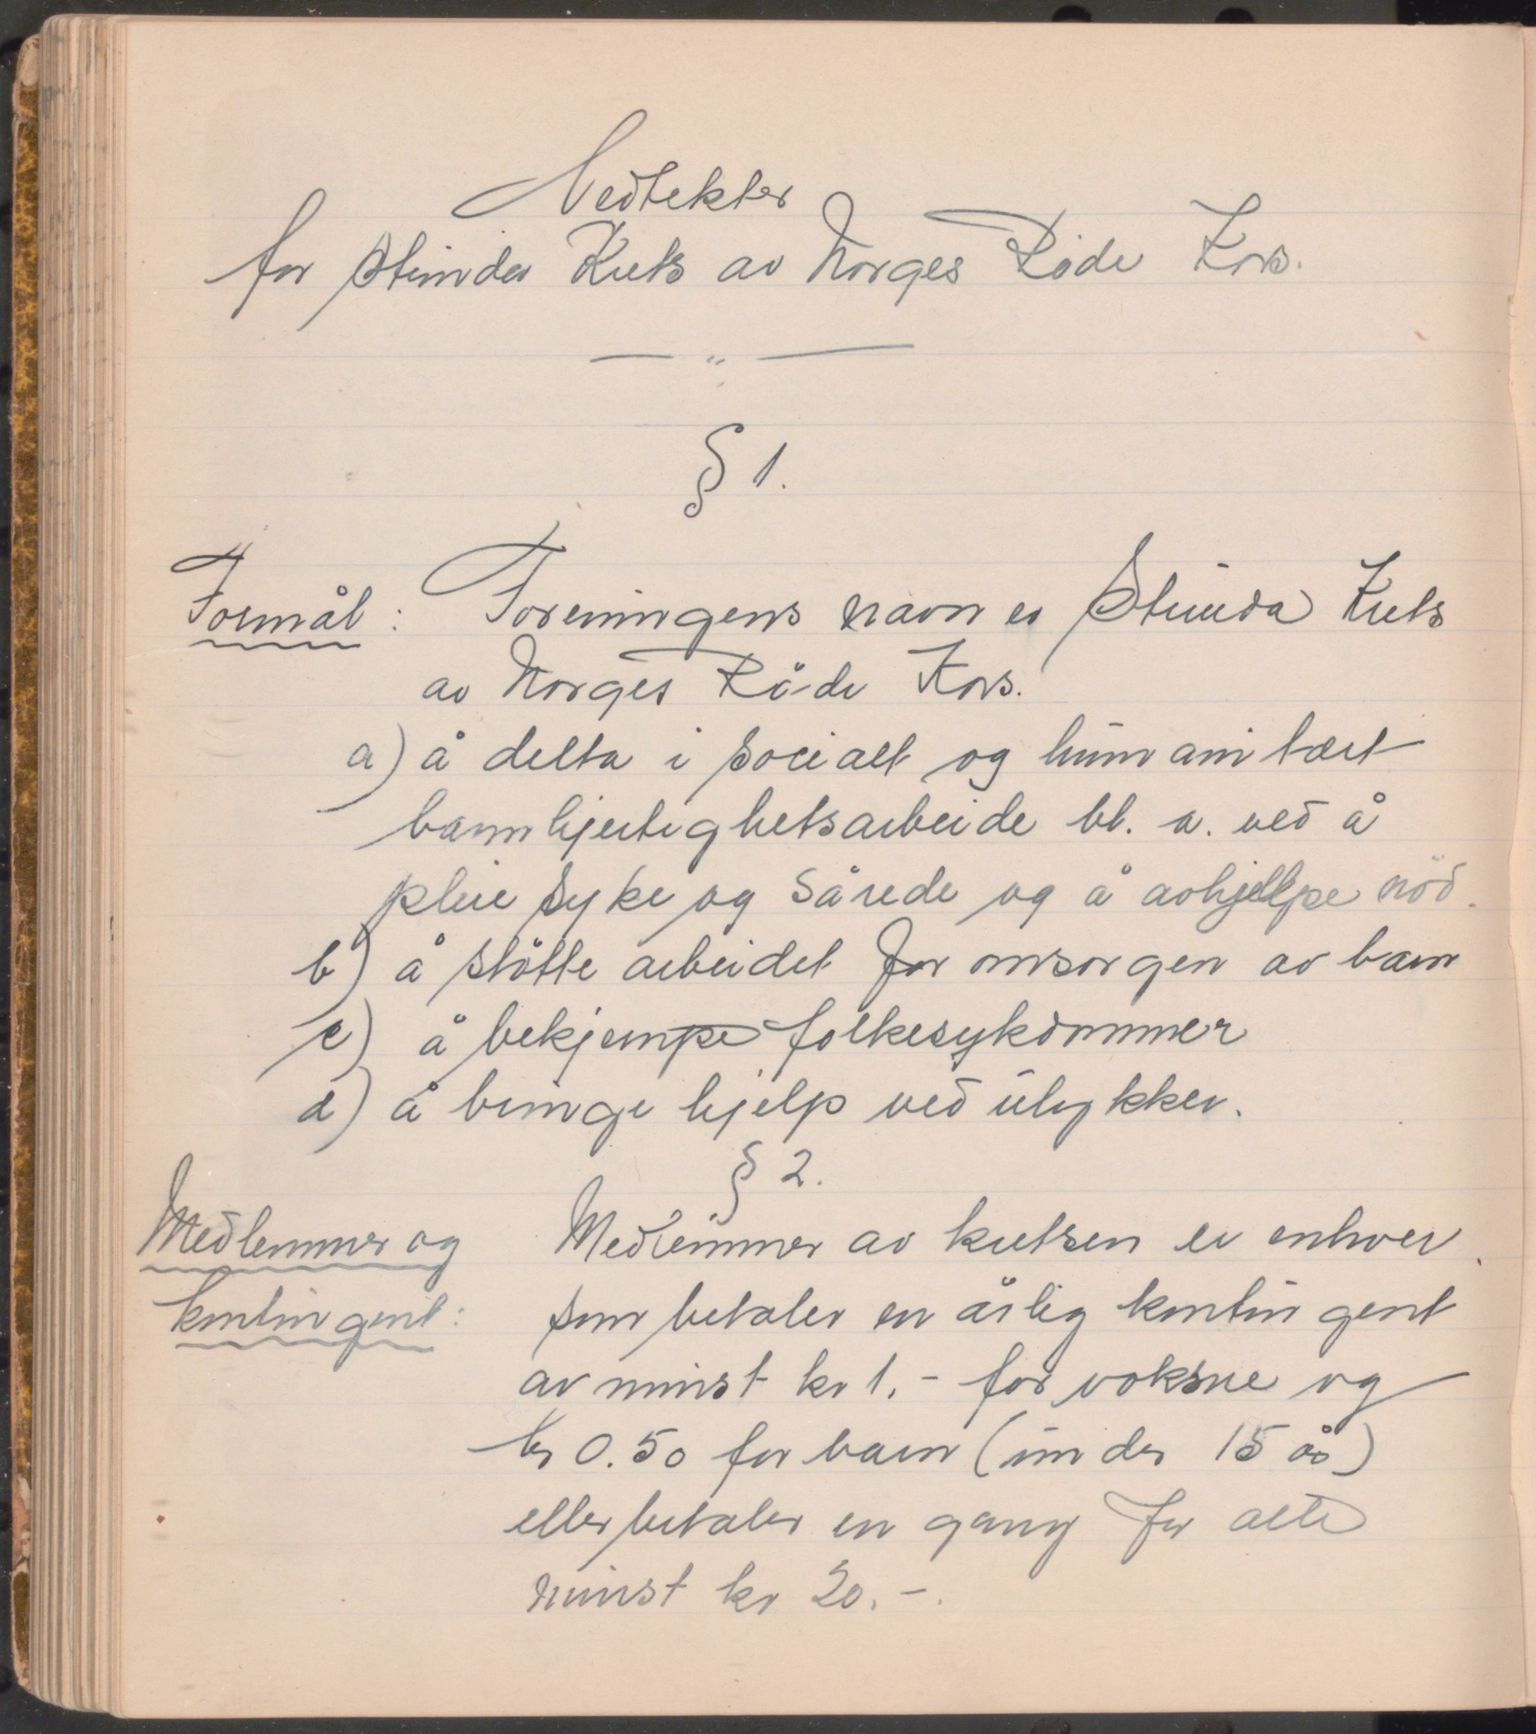 Vedtekter
for Strinda Krets av Norges Røde Kors.
— „ —
§ 1.
Formål: Foreningens navn er Strinda Krets
av Norges Røde Kors.
a) å delta i socialt og humanitært
barmhjertighetsarbeide bl. a. ved å
pleie syke og sårede og å avhjelpe nöd.
b) å stötte arbeidet for omsorgen av barn
c) å bekjempe folkesykdommer
d) å bringe hjelp ved ulykker.
§ 2.
Medlemmer og Medlemmer av kretsen er enhver
kontingent: som betaler en årlig kontingent
av minst kr 1.- for voksne og
kr 0.50 for barn (under 15 år)
eller betaler en gang for alle
minst kr 20.-.